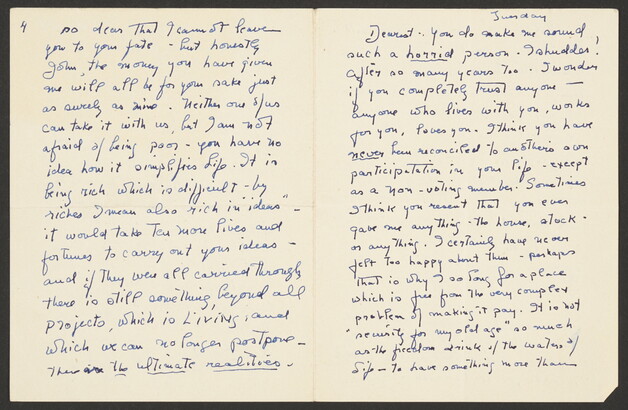 4
so dear that I cannot leave
you to your fate - but honestly
John, the money you have given
me will all be for your sake just
as surely as mine. Neither one of us
can take it with us, but I am not
afraid of being poor - you have no
idea how it simplifies life. It is
being rich which is difficult - by
riches I mean also rich in "ideas" -
it would take ten more lives and
fortunes to carry out your ideas -
and if they were all carried through
there is still something, beyond all
projects, which is Living, and
which we can no longer postpone -
the ultimate realities.
Tuesday
Dearest - you do make me sound
such a horrid person. I shudder!
After so many years too. I wonder
if you completely trust anyone -
anyone who lives with you, works
for you, loves you. I think you have
never been reconciled to another's own
participation in your life - except
as a non-voting member. Sometimes
I think you resent that you ever
gave me anything - the house, stock -
or anything. I certainly have never
felt too happy about them - perhaps
that is why I so long for a place
which is free from the very complex
problem of making it pay. It is not
"security for my old age" so much
as the freedom drink of the waters of
Life - to have something more than